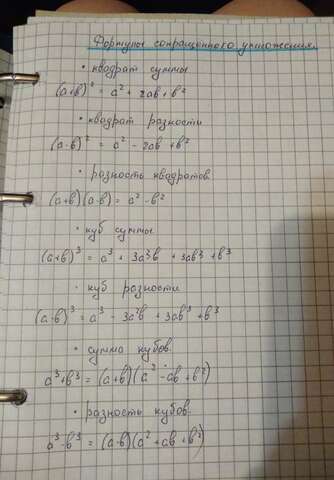 Формулы сокращенного умножения.
• квадрат суммы
(a+b)² = a² + 2ab + b²
• квадрат разности
(a-b)² = a² - 2ab + b²
• разность квадратов.
(a+b)(a-b) = a² - b²
• куб суммы
(a+b)³ = a³ + 3a³b + 3ab³ + b³
• куб разности
(a-b)³ = a³ - 3a²b + 3ab³ + b³
• сумма кубов.
a³+b³ = (a+b)(a² - ab + b²)
• разность кубов.
a³-b³ = (a-b)(a² + ab + b²)